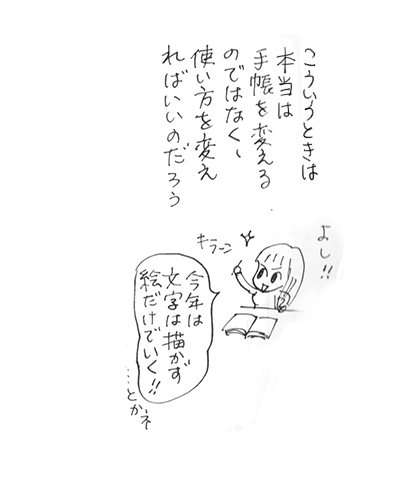 こういうときは
本当は
手帳を変える
のではなく、
使い方を変え
ればいいのだろう
よし!!
キラーン
今年は
文字は描かず
絵だけでいく!!
…とかネ